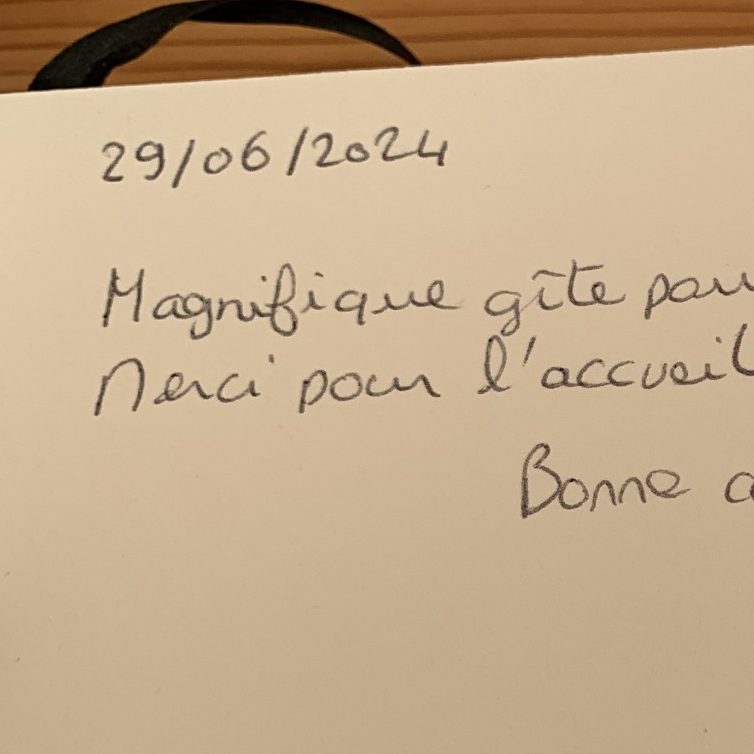 29/06/2024
Magnifique gîte pou
Merci pour l'accueil
Bonne